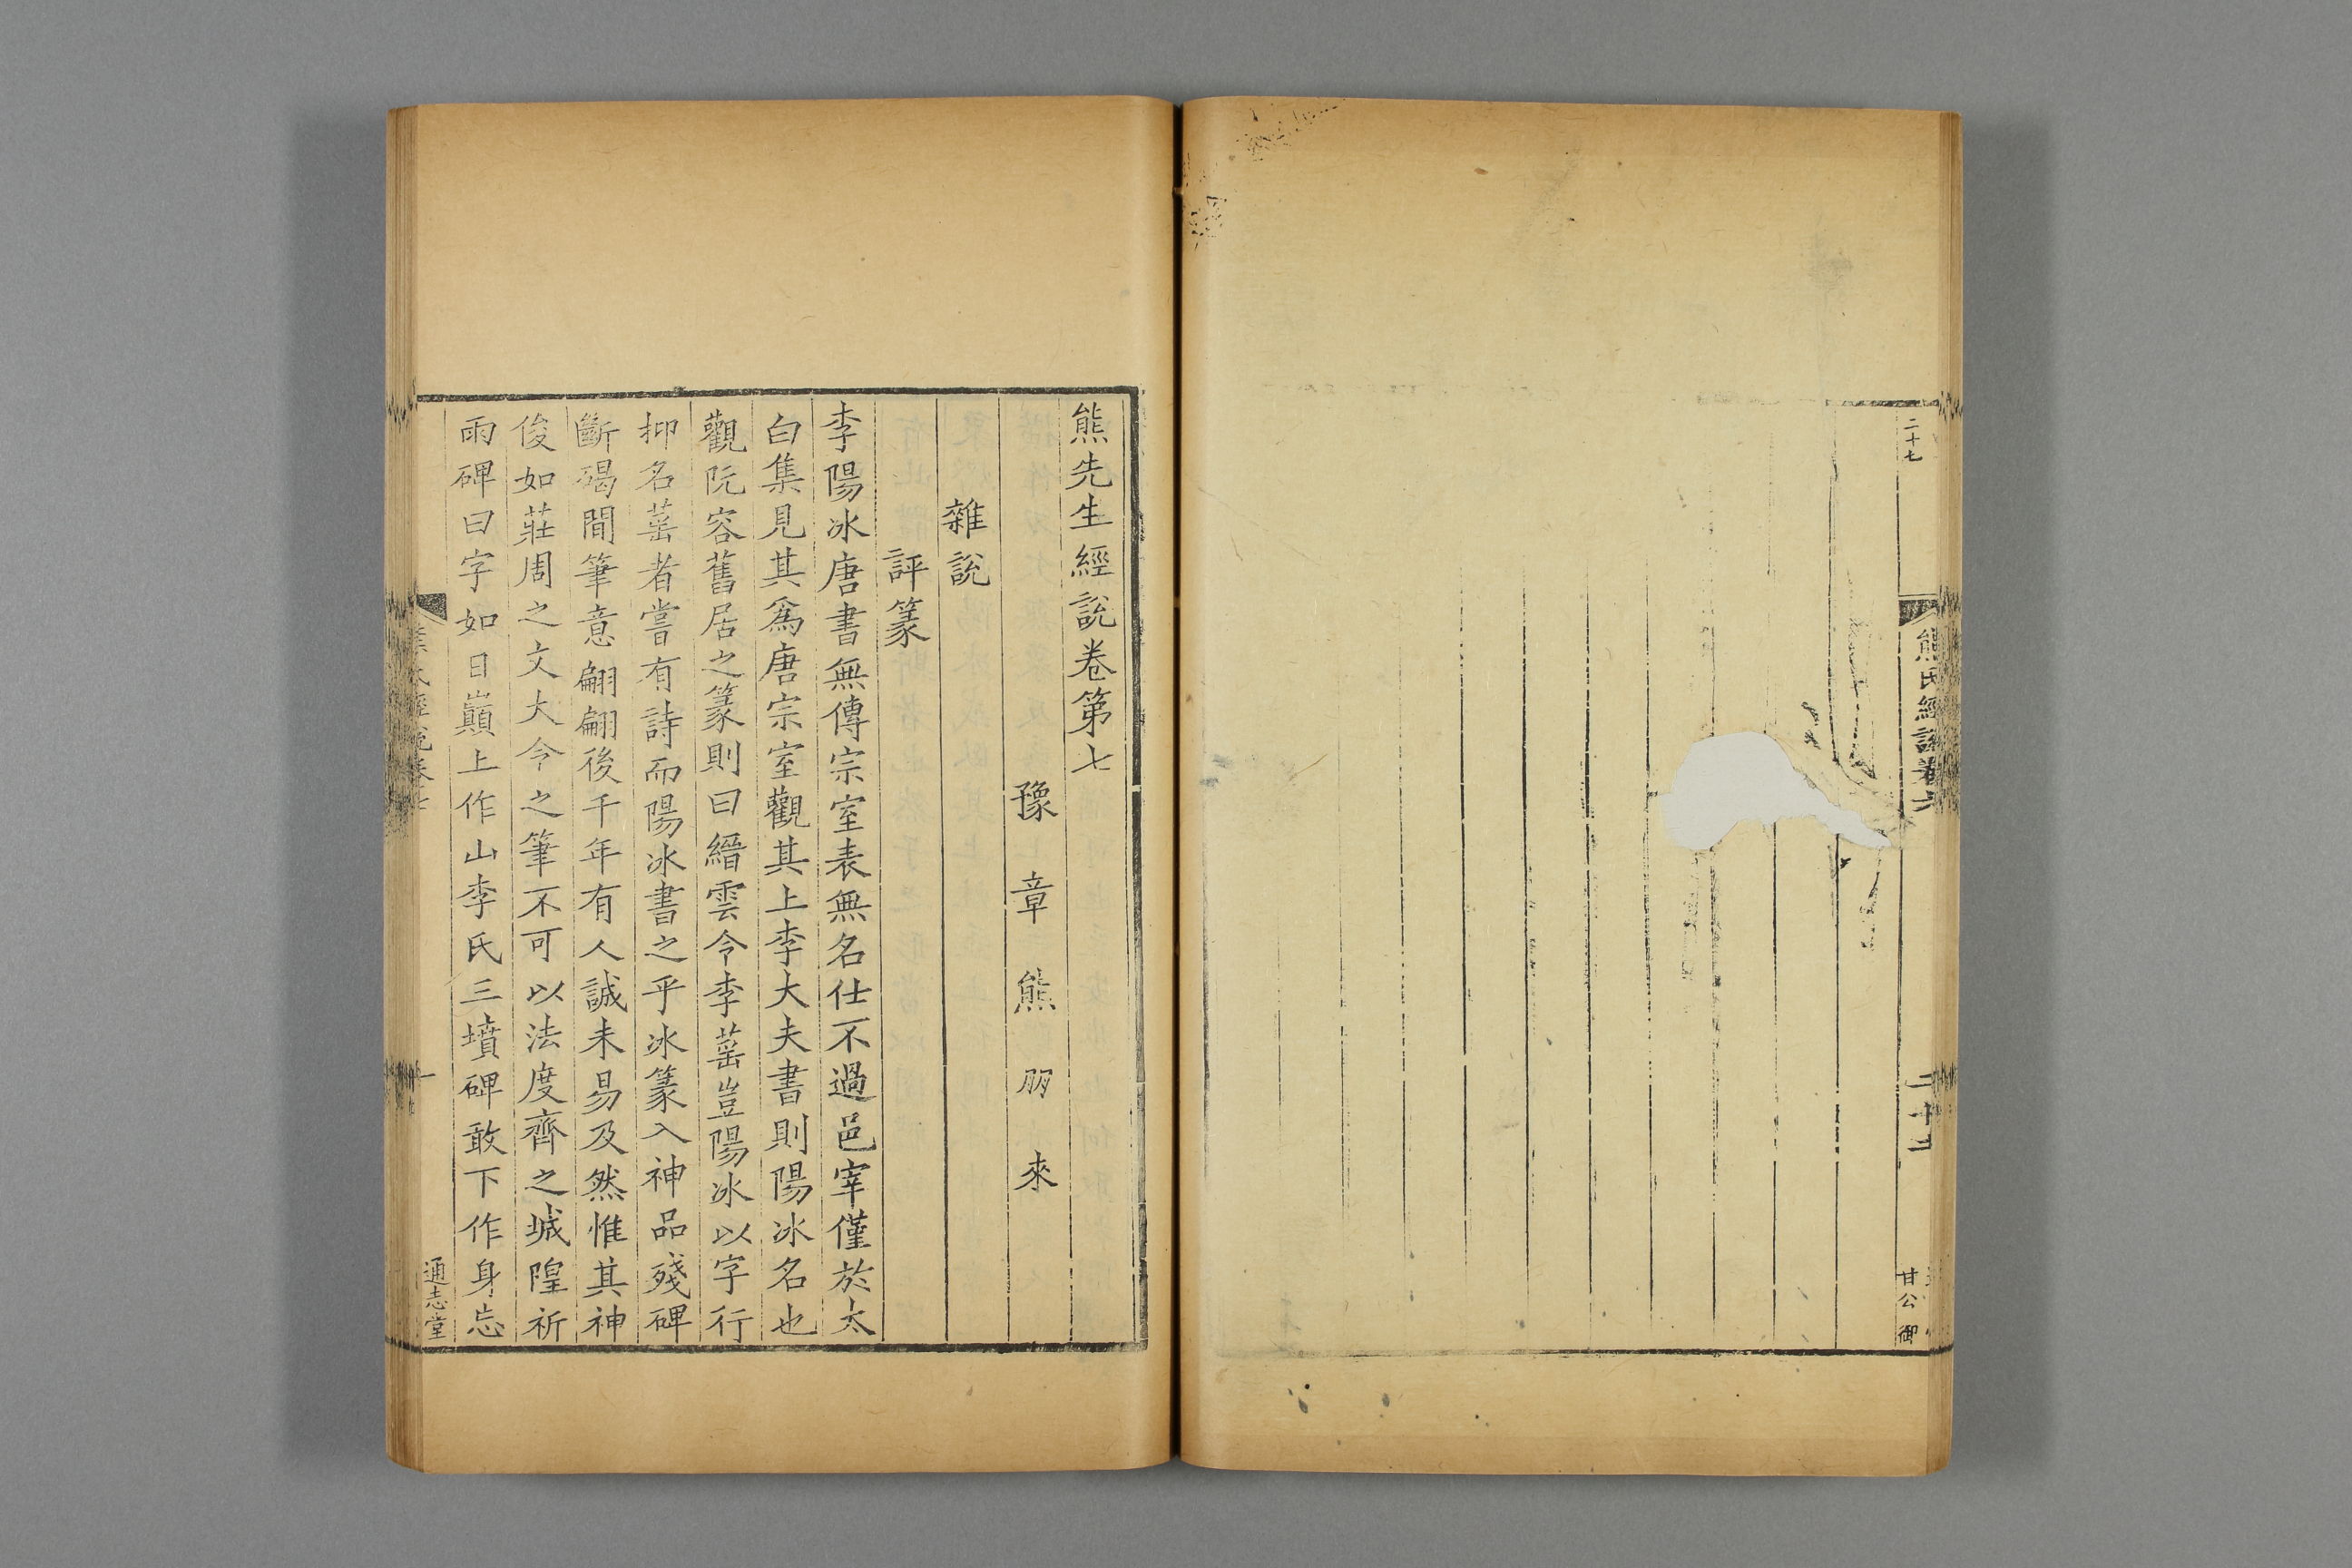 二十七
熊氏經說卷六
二十七
甘公御
熊先生經說卷第七
豫章熊朋來
雜說
評篆
李陽冰唐書無傳宗室表無名仕不過邑宰僅於太
白集見其爲唐宗室觀其上李大夫書則陽冰名也
觀阮容舊居之篆則曰縉雲令李蒕豈陽冰以字行
抑名蒕者嘗有詩而陽冰書之乎冰篆入神品殘碑
斷碣間筆意翩翩後千年有人誠未易及然惟其神
俊如莊周之文大令之筆不可以法度齊之城隍祈
雨碑曰字如日巔上作山李氏三墳碑敢下作身忘
經說卷七
一
通志堂